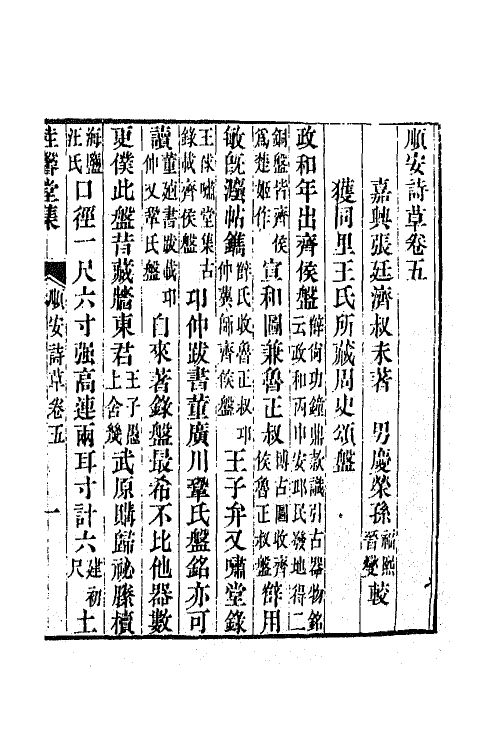 順安詩草卷五
嘉興張廷濟叔未著 男慶榮孫福熙晉燮較
獲同里王氏所藏周史頌盤
政和年出齊侯盤薛尚功鐘鼎款識引古器物銘云政和丙申安邱民發地得二
銅盤皆齊侯為楚姬作宣和圖兼魯正叔博古圖收齊侯魯正叔盤薛用
敏旣濅帖鐫薛氏收魯正叔邛仲㜏師齊侯盤王子弁又嘯堂錄
王俅嘯堂集古錄載齊侯盤邛仲跋書董廣川鞏氏盤銘亦可
讀董逌書跋載邛仲又鞏氏盤自來著錄盤最希不比他器數
更僕此盤昔藏牆東君王子愚上舍幾武原購歸祕縢櫝
海鹽汪氏口徑一尺六寸强高連兩耳寸計六建初尺土
桂馨堂集 順安詩草卷五 一